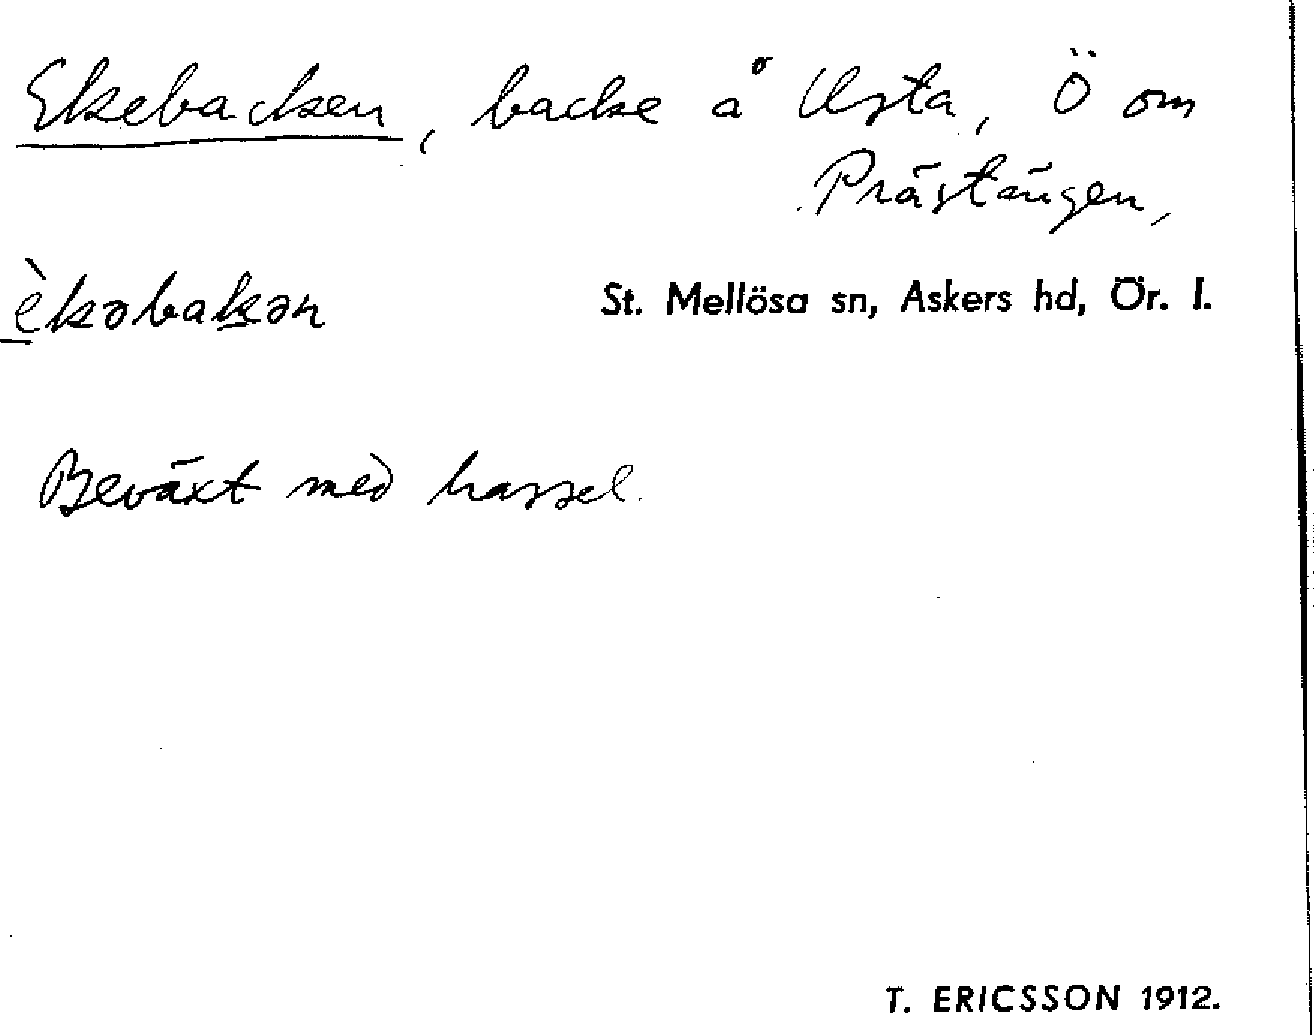 Ekebacken, backe å Usta, Ö om
Prästängen,
èkəbakən
St. Mellösa sn, Askers hd, Ör. l.
Beväxt med hassel.
T. ERICSSON 1912.